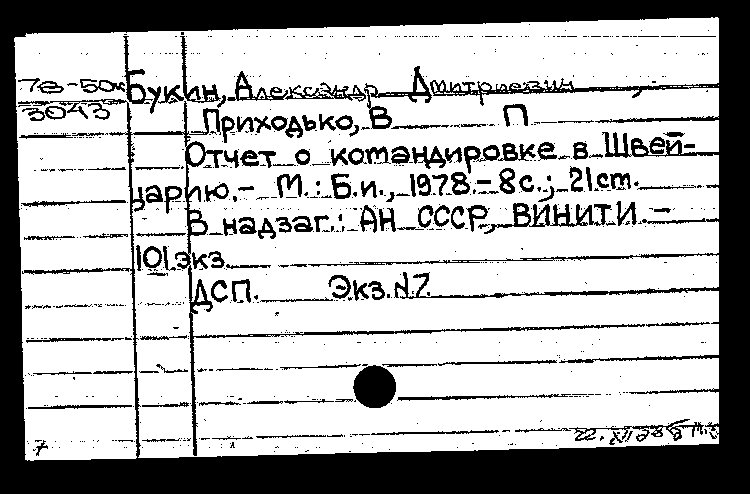 78-50к Букин, Александр Дмитриевич,
3043
Приходько, В П
Отчет о командировке в Швей-
царию.- М.: Б.и., 1978.- 8с.; 21см.
В надзаг.: АН СССР, ВИНИТИ.-
101 экз.
ДСП. Экз.№7.
22. XII